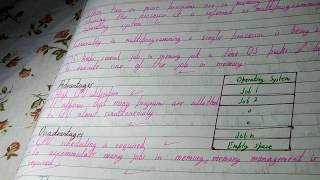 When two or more programs are in memory
sharing the processor is referred as multiprogramming
operating system.
Generally in multiprogramming a single processor is being
OS keeps several job in memory at a time. OS picks &
execute one of the job in memory
Advantages
High CPU utilization
It allows that many programs are allotted
to CPU almost simultaneously
Disadvantages
CPU scheduling is required
To accommodate many job in memory, memory management is
required.
Operating System
Job 1
Job 2
Job n
Empty space